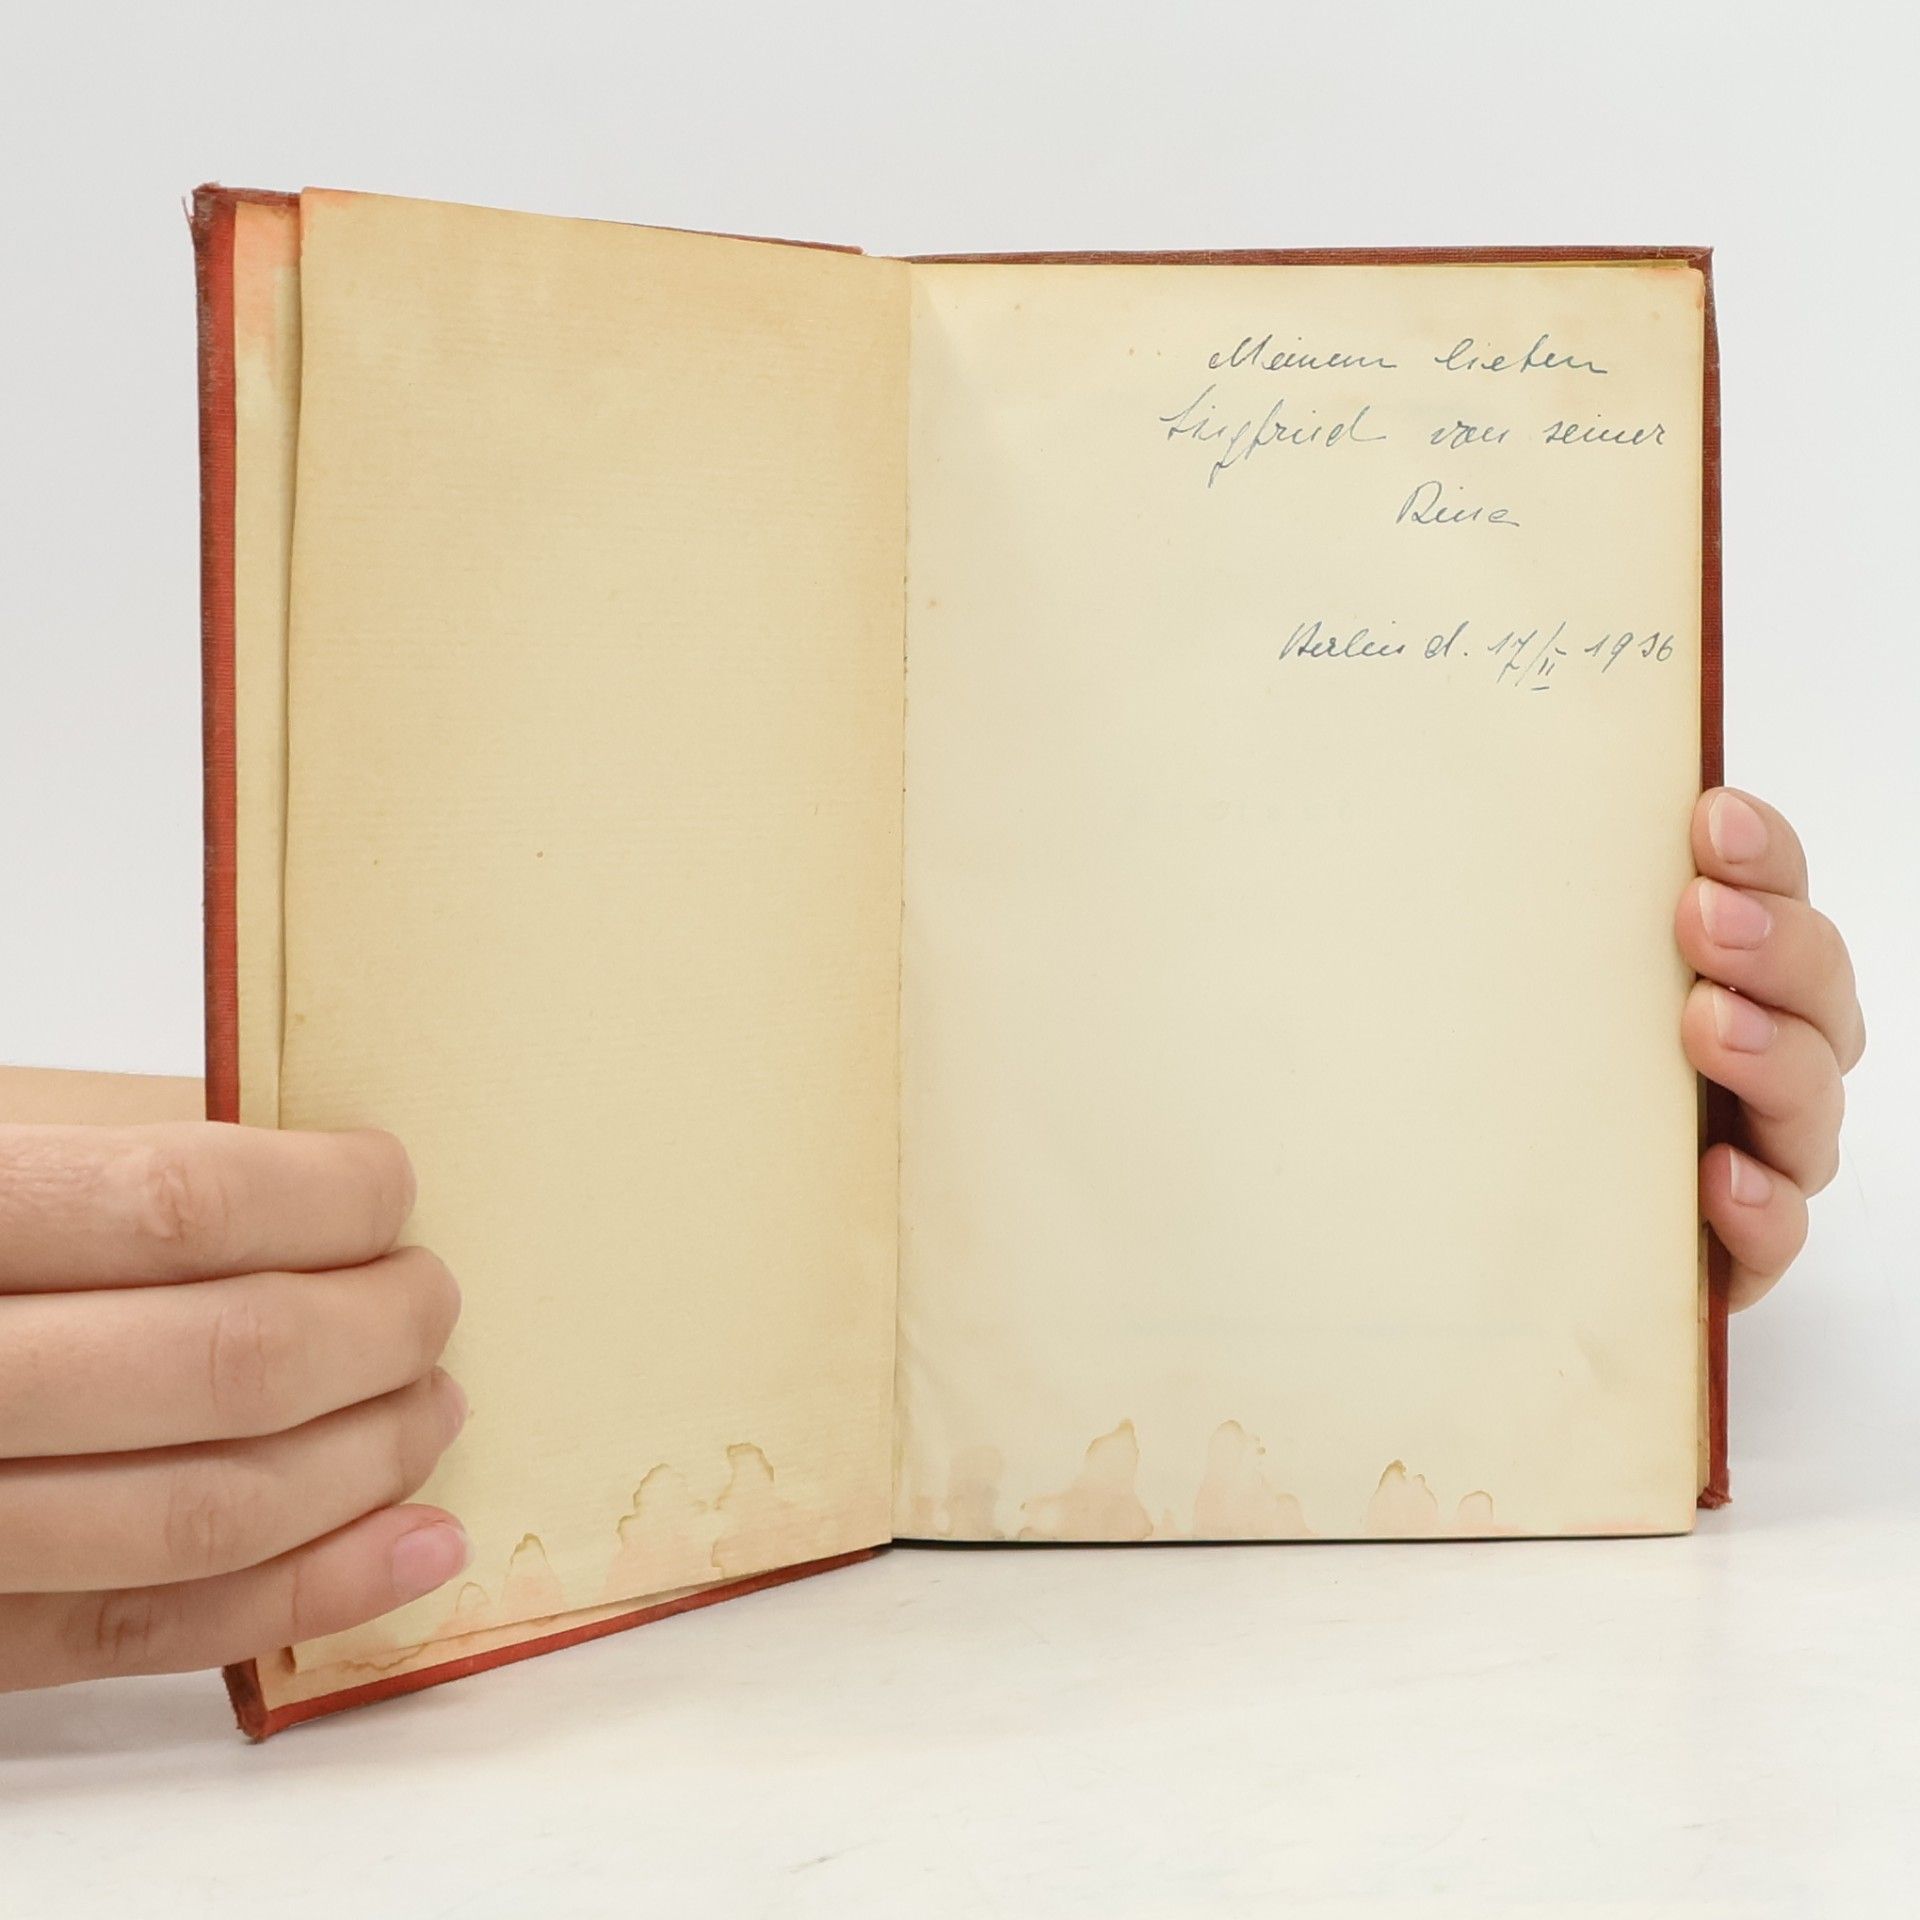 Meinem lieben
Siegfried von seiner
Berlin d. 17/II 1936